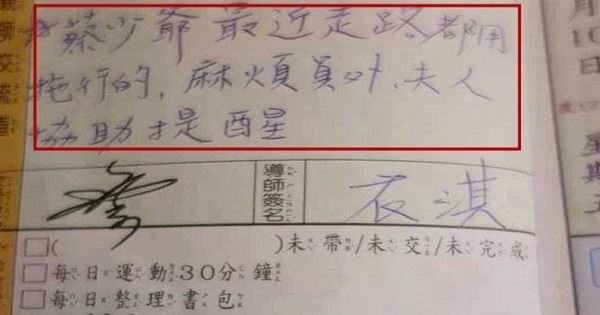 蔡少爺最近走路都用
拖行的,麻煩員外、夫人
協助提醒
導師簽名
衣淇
□( )未帶/未交/未完成
□每日運動30分鐘
□每日整理書包
月
10
日
星
期
五